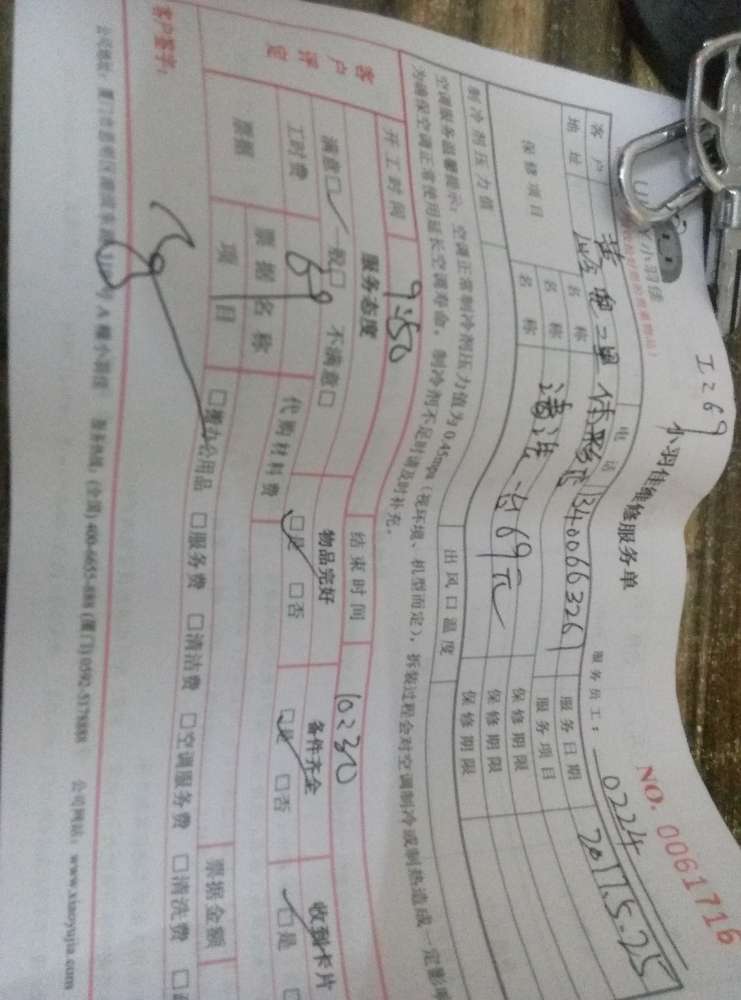 工269
小羽佳
小羽佳维修服务单
NO. 0061716
服务员工： 0224
客户
地址
电话
服务日期 2017.5.25
保修项目
名称
服务项目
名称
清洗
保修期限
名称
69元
保修期限
制冷剂压力值
出风口温度
保修期限
空调服务温馨提示：空调正常制冷剂压力值为0.45mpa（视环境、机型而定），拆装过程会对空调制冷或制热造成一定影响
为确保空调正常使用延长空调寿命，制冷剂不足时请及时补充。
开工时间 9:50 结束时间 10:30
客户评定
服务态度 物品完好 备件齐全 收到卡片
满意□ 一般□ 不满意□ □是 □否 □是 □否 □是
工时费 69 代购材料费
票据
票据名称
票据金额
项目
□办公用品 □服务费 □清洁费 □空调服务费 □清洗费
客户签字：
服务热线：(全国) 400-6655-888 (厦门) 0592-5178888 公司网站：www.xiaoyujia.com